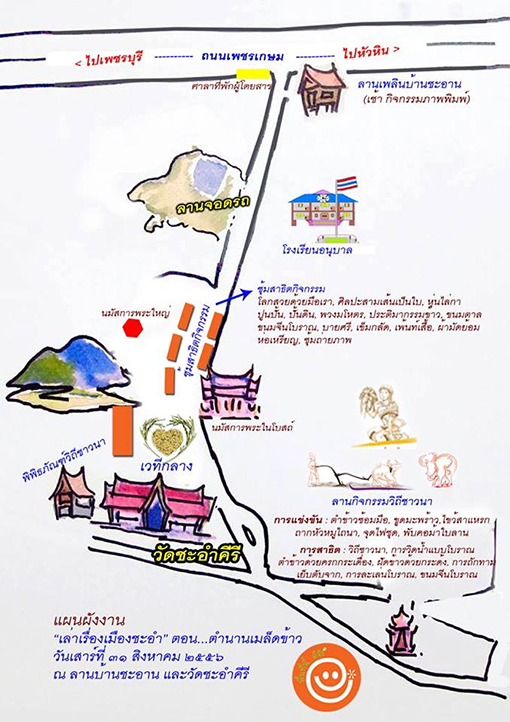 < ไปเพชรบุรี ---------- ถนนเพชรเกษม ---------- ไปหัวหิน >
ศาลาที่พักผู้โดยสาร
ลานเพลินบ้านชะอาน
(เช้า กิจกรรมภาพพิมพ์)
ลานจอดรถ
โรงเรียนอนุบาล
ซุ้มสาธิตกิจกรรม
โลกสวยด้วยมือเรา, ศิลปะสามเส้นเป็นใบ, หุ่นไล่กา
ปูนปั้น, ปั้นดิน, พวงมโหตร, ประติมากรรมขาว, ขนมตาล
ขนมจีนโบราณ, บายศรี, เข็มกลัด, เพ้นท์เสื้อ, ผ้ามัดย้อม
หอเหรียญ, ซุมถายภาพ
นมัสการพระใหญ่
ซุ้มสาธิตกิจกรรม
นมัสการพระในโบสถ์
พิพิธภัณฑ์วิถีชาวนา
เวทีกลาง
ลานกิจกรรมวิถีชาวนา
การแข่งขัน : ตำข้าวซ้อมมือ, ขูดมะพร้าว, ไขว้สาแหรก
ถากหัวหมูไถนา, จุดไฟชุด, พับคอม้าใบลาน
การสาธิต : วิถีชาวนา, การวิดน้ำแบบโบราณ
ตำข้าวด้วยครกกระเดื่อง, ผัดขาวดวยกระดง, การถักทาม
เย็บตับจาก, การละเลนโบราณ, ขนมจีนโบราณ
วัดชะอำคีรี
แผนผังงาน
“เล่าเรื่องเมืองชะอำ” ตอน...ตำนานเมล็ดข้าว
วันเสาร์ที่ ๓๑ สิงหาคม ๒๕๕๖
ณ ลานบ้านชะอาน และวัดชะอำคีรี